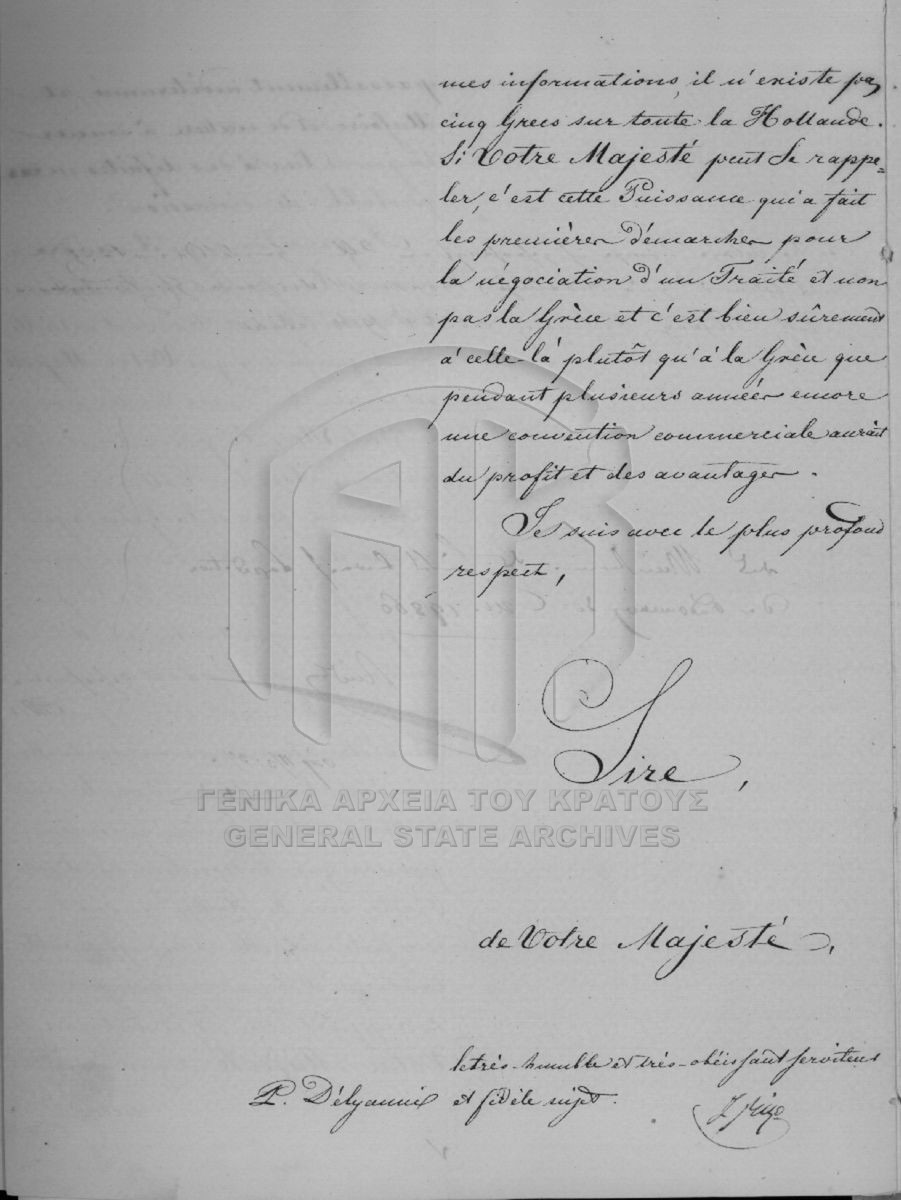 mes informations, il n'existe pas
cinq Grecs sur toute la Hollande.
Si Votre Majesté peut Se rappe=
ler, c'est cette Puissance qui a fait
les premières démarches pour
la négociation d'un Traité et non
pas la Grèce et c'est bien sûrement
à celle-là plutôt qu'à la Grèce que
pendant plusieurs années encore
une convention commerciale aurait
du profit et des avantages.
Je suis avec le plus profond
respect,
Sire,
ΓΕΝΙΚΑ ΑΡΧΕΙΑ ΤΟΥ ΚΡΑΤΟΥΣ
GENERAL STATE ARCHIVES
de Votre Majesté,
le très-humble et très-obéissant serviteur
P. Délyannis et fidèle sujet.